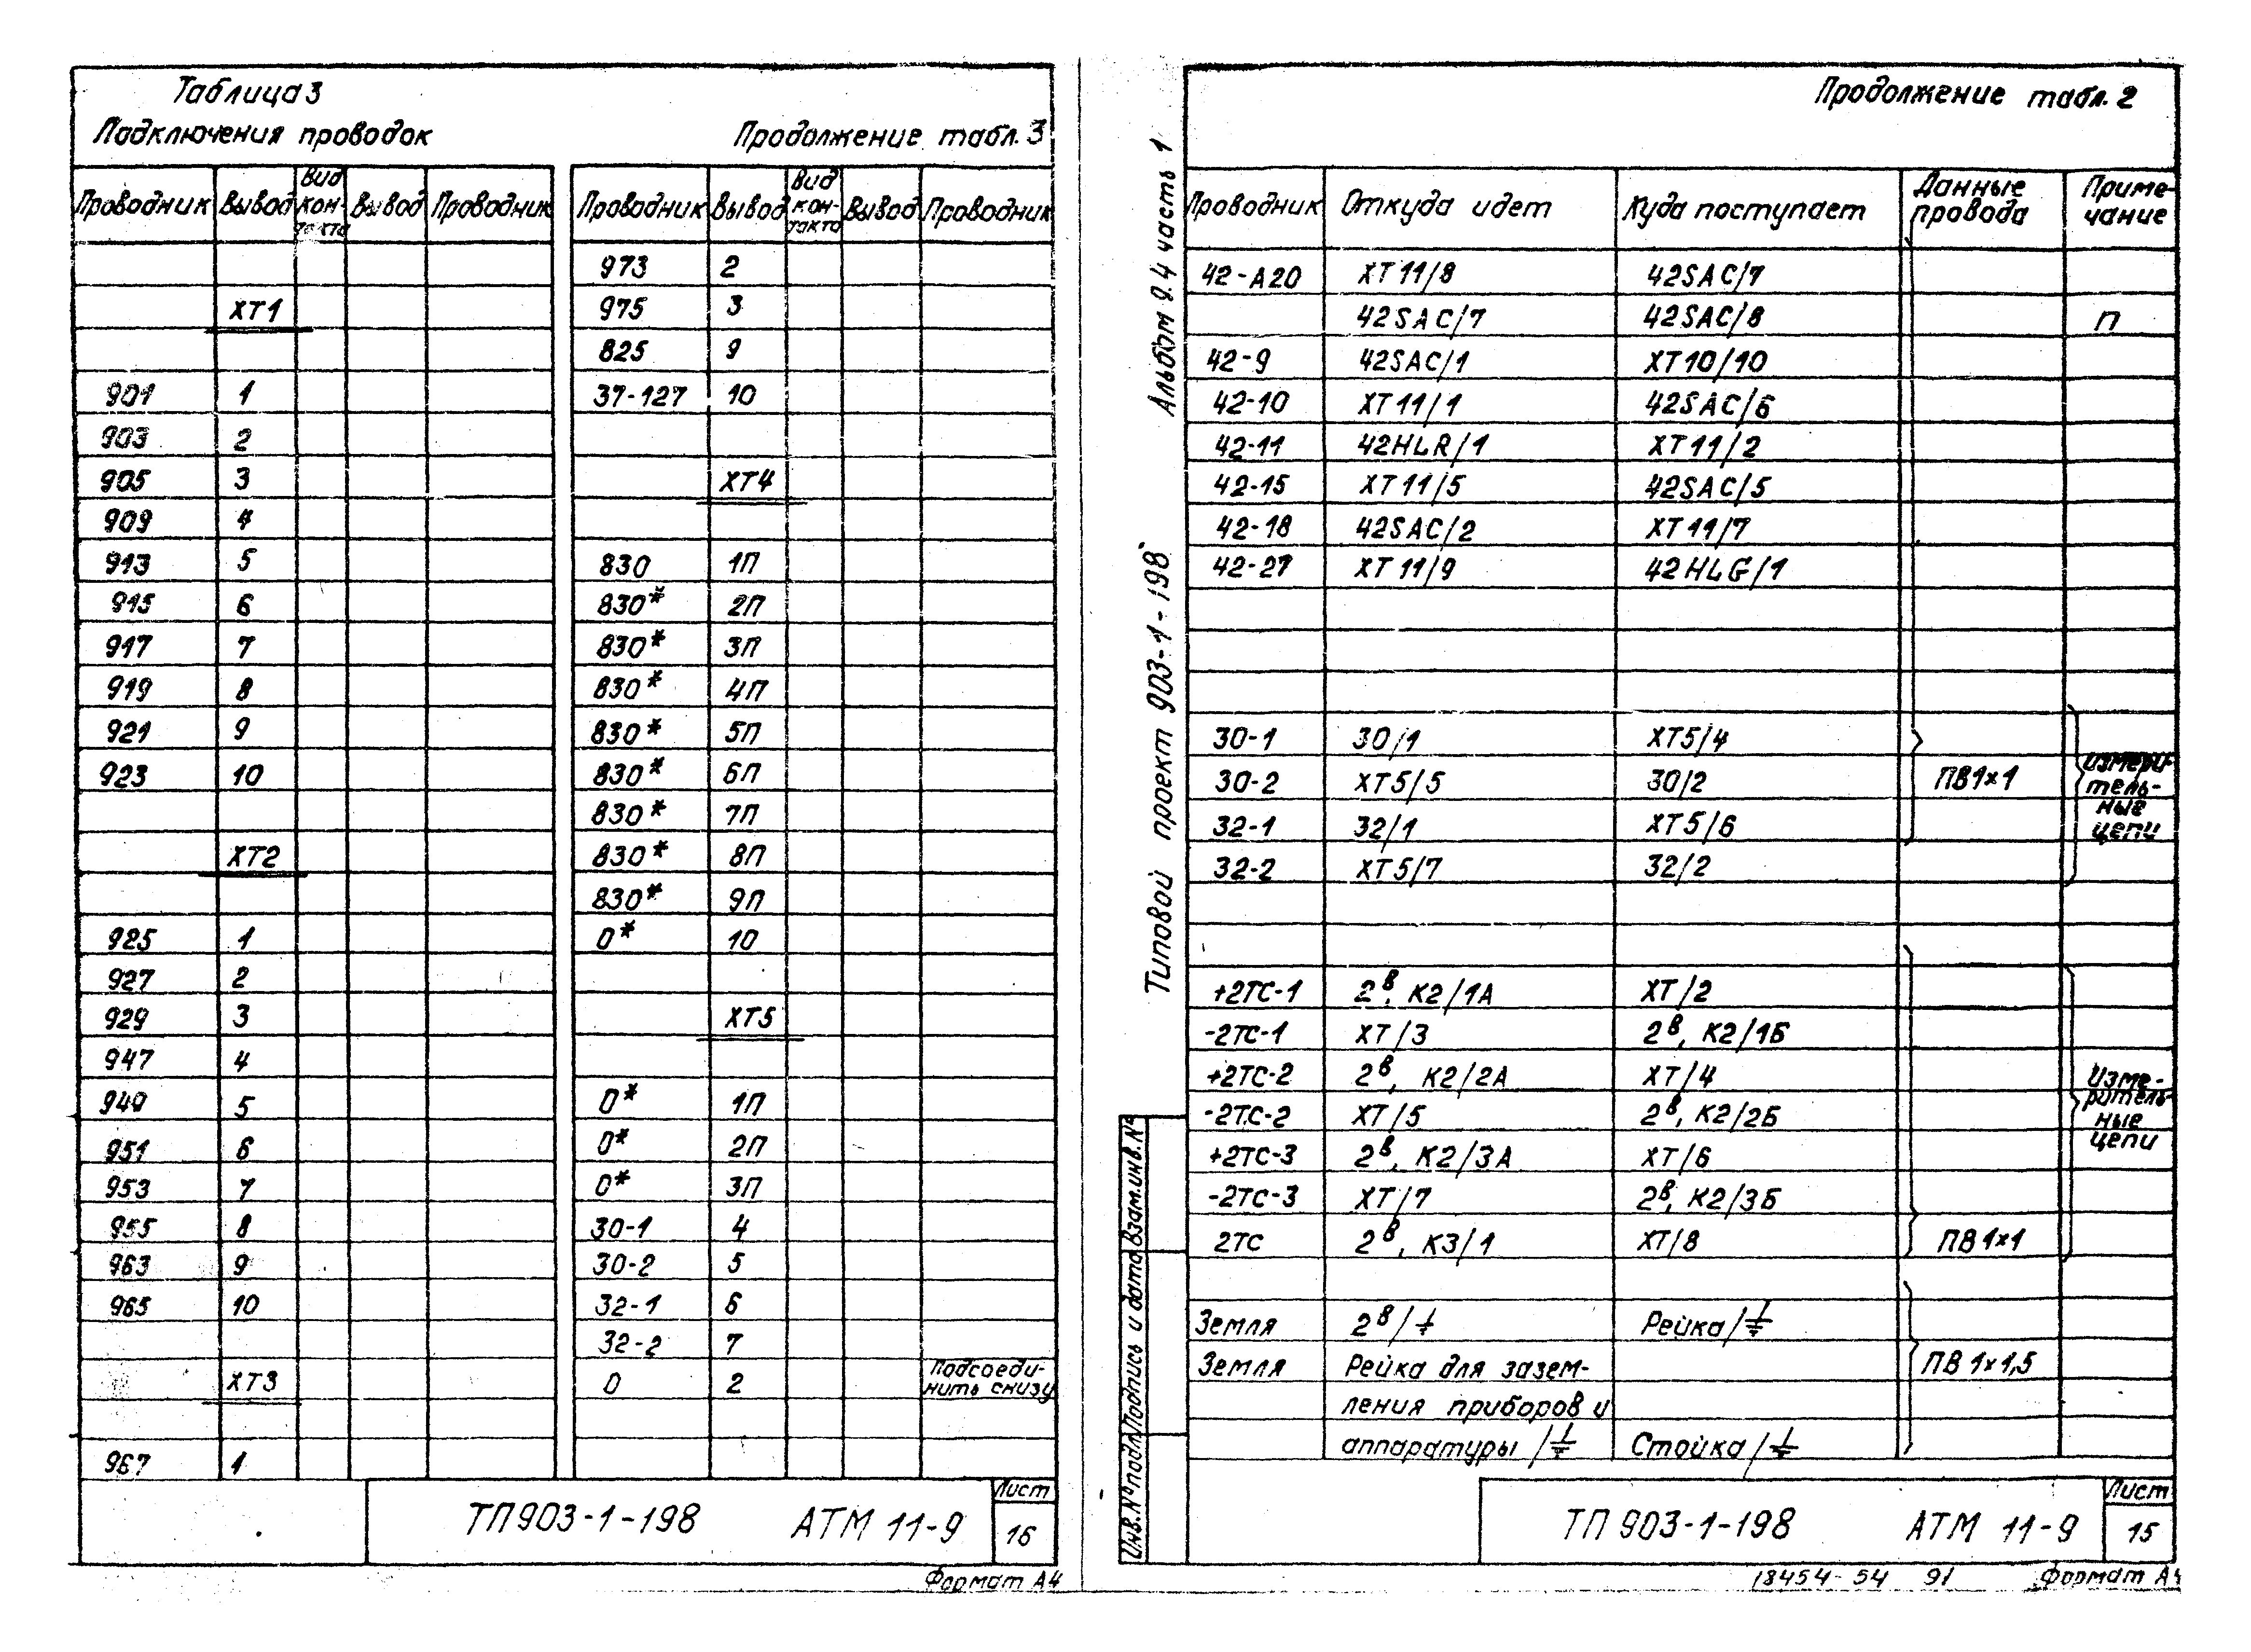 Таблица 3
Подключения проводок
Продолжение табл. 3
Проводник Вывод Вид кон-такта Вывод Проводник
ХТ1
901 1
903 2
905 3
909 4
913 5
915 6
917 7
919 8
921 9
923 10
ХТ2
925 1
927 2
929 3
947 4
949 5
951 6
953 7
955 8
963 9
965 10
ХТ3
967 1
Проводник Вывод Вид кон-такта Вывод Проводник
973 2
975 3
825 9
37-127 10
ХТ4
830 1П
830* 2П
830* 3П
830* 4П
830* 5П
830* 6П
830* 7П
830* 8П
830* 9П
0* 10
ХТ5
0* 1П
0* 2П
0* 3П
30-1 4
30-2 5
32-1 6
32-2 7
0 2 Подсоеди-нить снизу
ТП903-1-198 АТМ 11-9
Лист
16
Формат А4
Альбом 9.4 часть 1
Типовой проект 903-1-198
Инв.№подл. Подпись и дата Взам.инв.№
Продолжение табл. 2
Проводник Откуда идет Куда поступает Данные провода Приме-чание
42-А20 ХТ11/8 42SAC/7
42SAC/7 42SAC/8 П
42-9 42SAC/1 ХТ10/10
42-10 ХТ11/1 42SAC/6
42-11 42HLR/1 ХТ11/2
42-15 ХТ11/5 42SAC/5
42-18 42SAC/2 ХТ11/7
42-27 ХТ11/9 42HLG/1
30-1 30/1 ХТ5/4
30-2 ХТ5/5 30/2 ПВ1×1
32-1 32/1 ХТ5/6
32-2 ХТ5/7 32/2
измери-
тель-
ные
цепи
+2ТС-1 2ᴮ, К2/1А ХТ/2
-2ТС-1 ХТ/3 2ᴮ, К2/1Б
+2ТС-2 2ᴮ, К2/2А ХТ/4
-2ТС-2 ХТ/5 2ᴮ, К2/2Б
+2ТС-3 2ᴮ, К2/3А ХТ/6
-2ТС-3 ХТ/7 2ᴮ, К2/3Б
2ТС 2ᴮ, К3/1 ХТ/8 ПВ1×1
Изме-
ритель-
ные
цепи
Земля 2ᴮ/⏚ Рейка/⏚
Земля Рейка для зазем- ПВ 1×1,5
ления приборов и
аппаратуры /⏚ Стойка/⏚
ТП 903-1-198 АТМ 11-9
Лист
15
18454-54 91 Формат А4